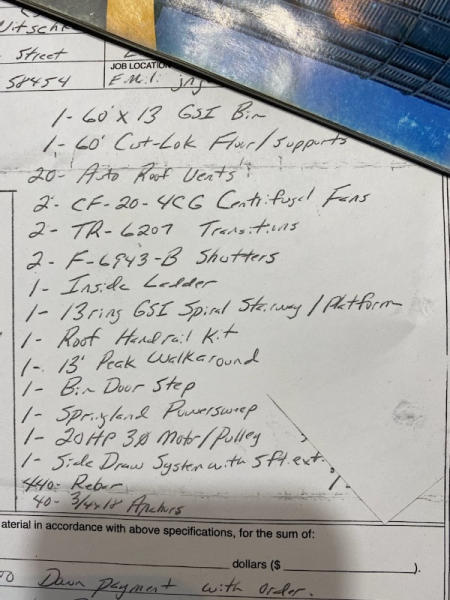 Street
58454
JOB LOCATION
1- 60' x 13 GSI Bin
1- 60' Cut-Lok Floor/supports
20- Auto Roof Vents
2- CF-20-4CG Centrifugal Fans
2- TR-6207 Transitions
2- F-6943-B Shutters
1- Inside Ladder
1- 13 ring GSI Spiral Stairway/platform
1- Roof Handrail Kit
1- 13' Peak Walkaround
1- Bin Door Step
1- Springland Powersweep
1- 20HP 3Ø Motor/Pulley
1- Side Draw System with 5ft.ext.
440- Rebar
40- 3/4x18 Anchors
aterial in accordance with above specifications, for the sum of:
dollars ($ ).
Down payment with order.